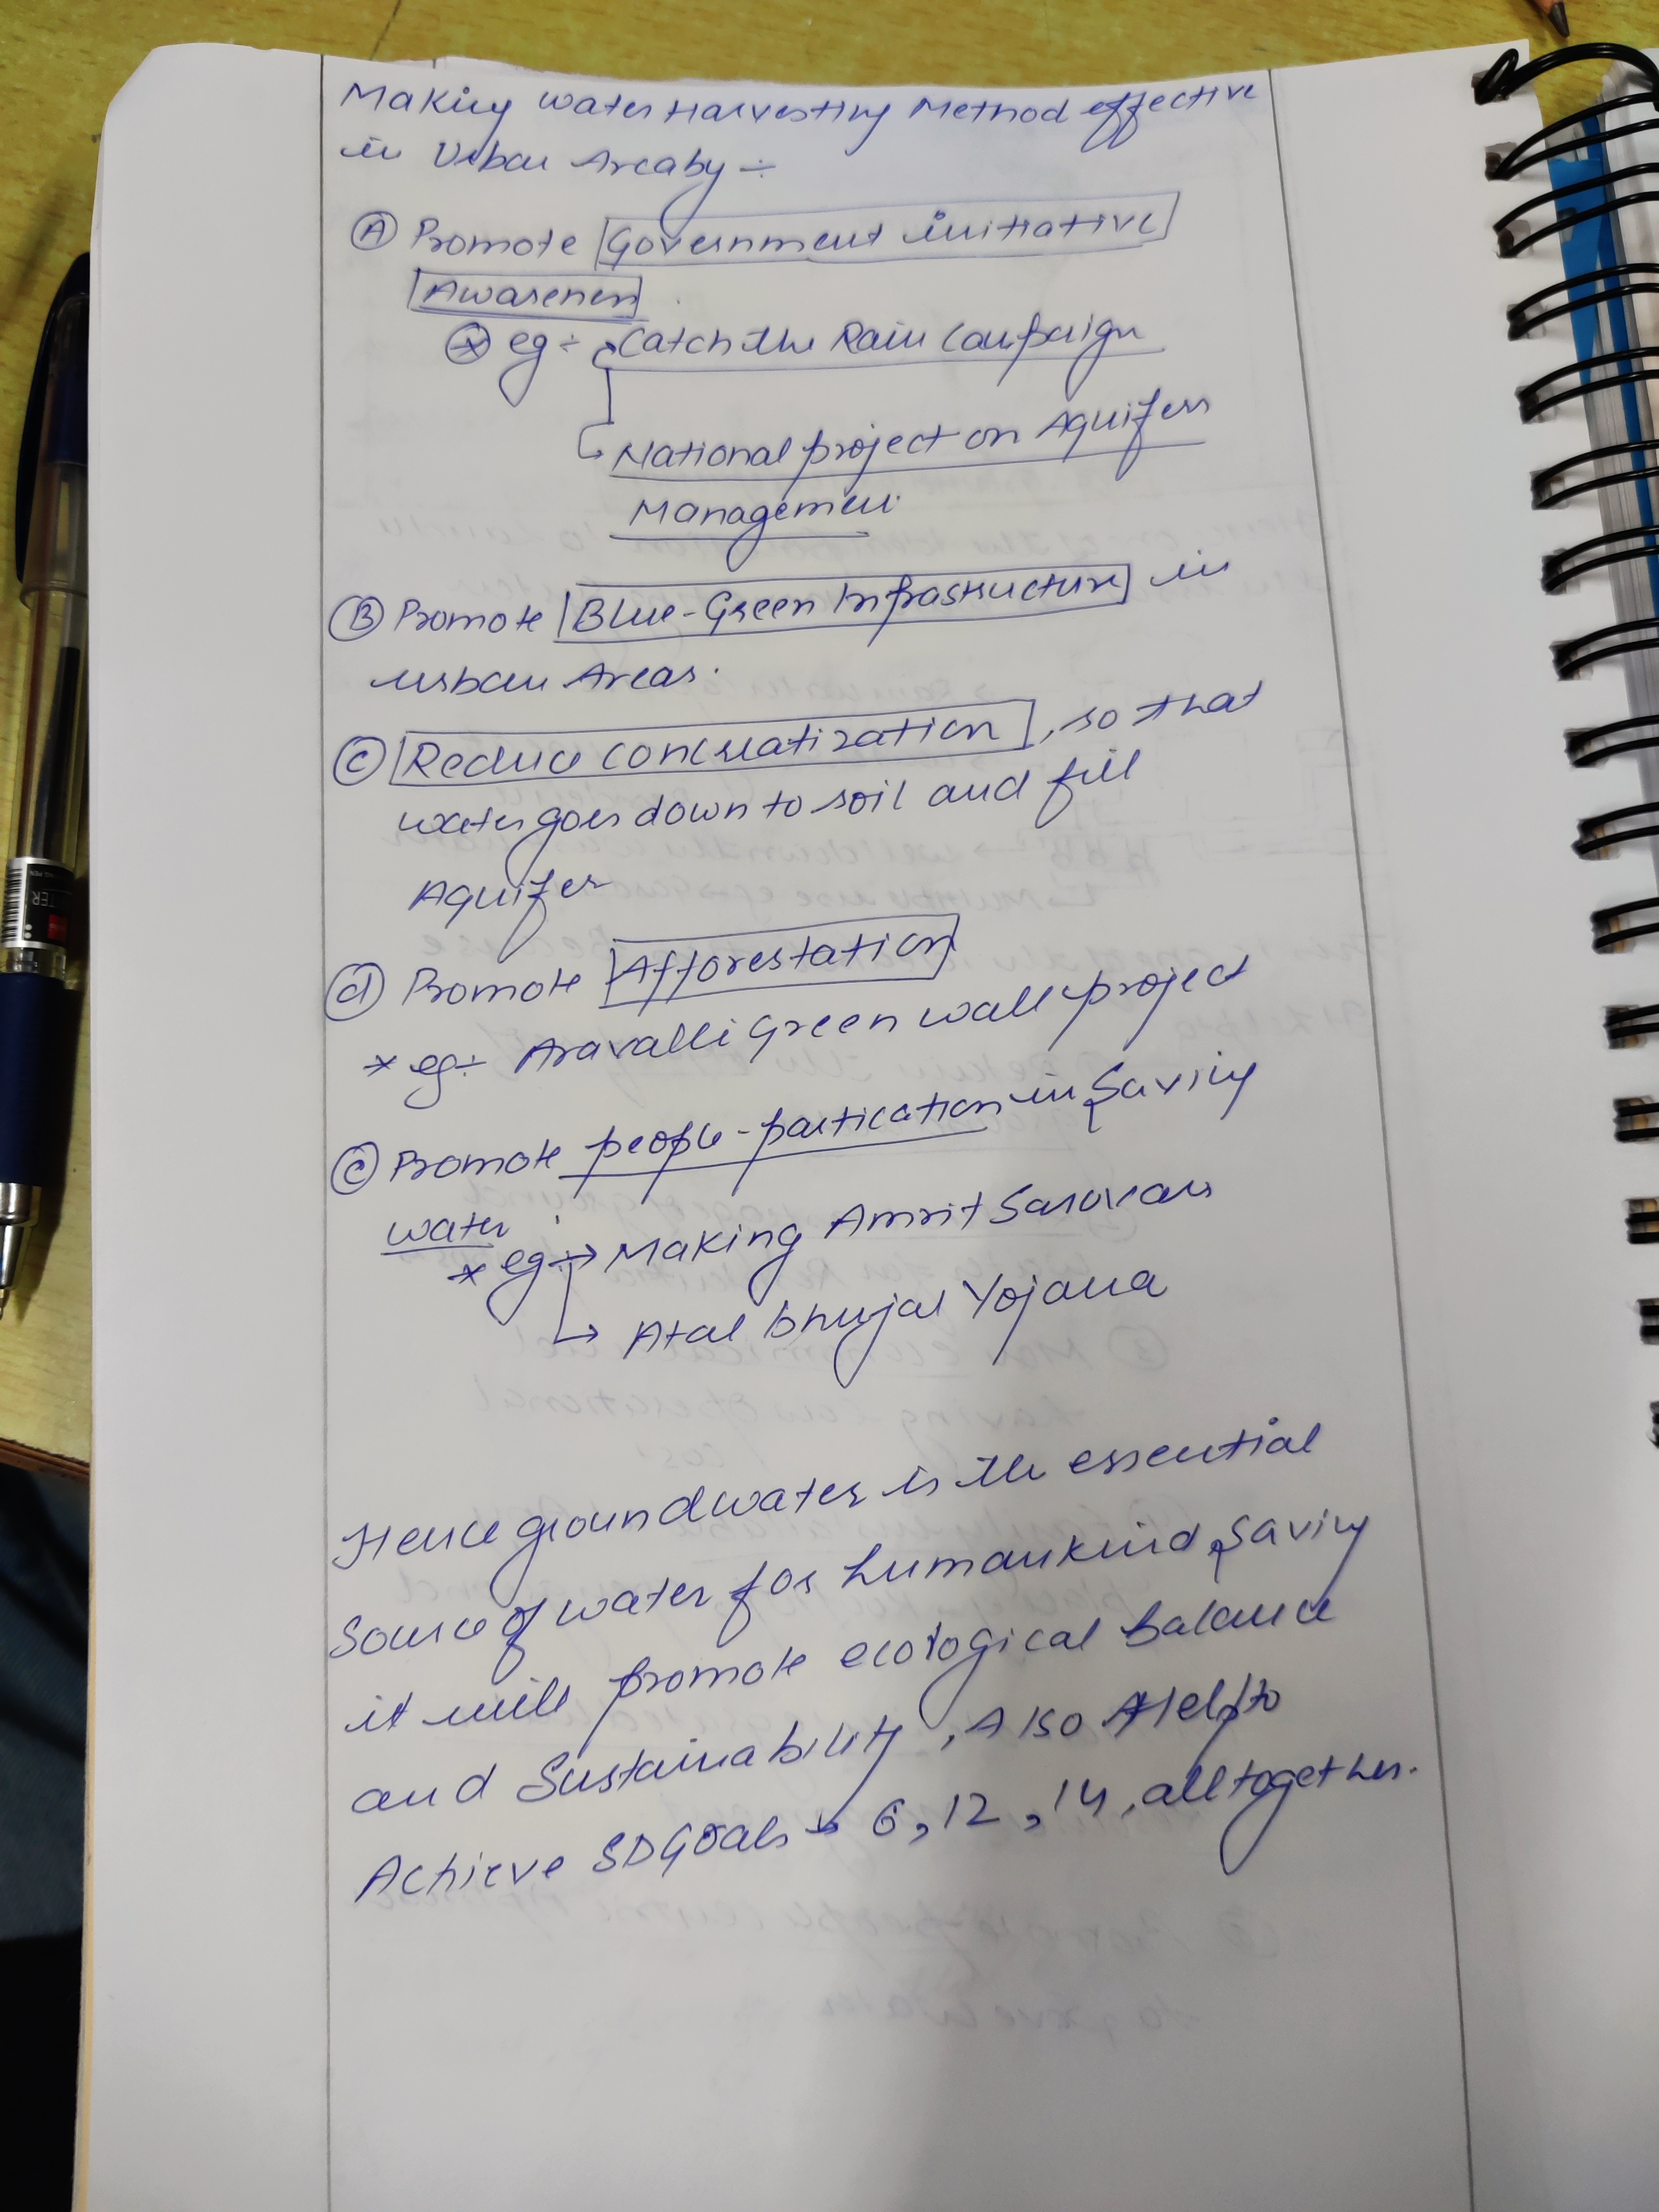 Making water Harvesting Method effective
in Urban Area by ÷
Ⓐ Promote Government initiative
Awareness.
* eg ÷ Catch the Rain Campaign
↳ National project on Aquifers
Management
Ⓑ Promote Blue-Green Infrastructure in
urban Areas.
Ⓒ Reduce concreatization, so that
water goes down to soil and fill
Aquifer
ⓓ Promote Afforestation
* eg ÷ Aravalli Green wall project
ⓔ Promote people-partication in Saving
water.
* eg ÷ → Making Amrit Sarovars
↳ Atal bhujal Yojana
Hence groundwater is the essential
Source of water for humankind, Saving
it will promote ecological balance
and Sustainability, Also Help to
Achieve SDGoals → 6, 12, 14, alltogether.